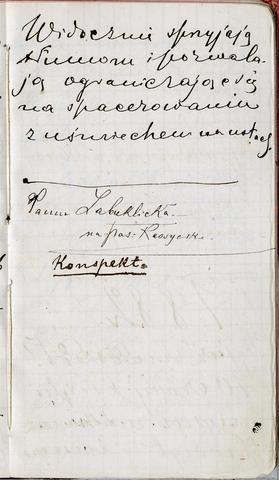 Widocznie sprzyjają
tłumom i pozwala-
ją ograniczając się
na spacerowaniu
z uśmiechem na ustach.
Panna Zabuklicka
na
Konspekt.